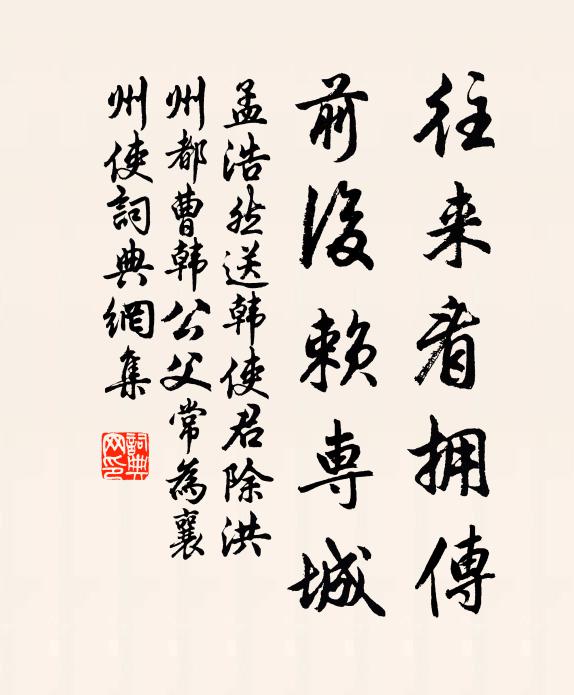 往来看拥傳
前後賴専城
孟浩然送韩使君除洪
州都曹韩公父常為襄
州使詞典網集
詞典网印